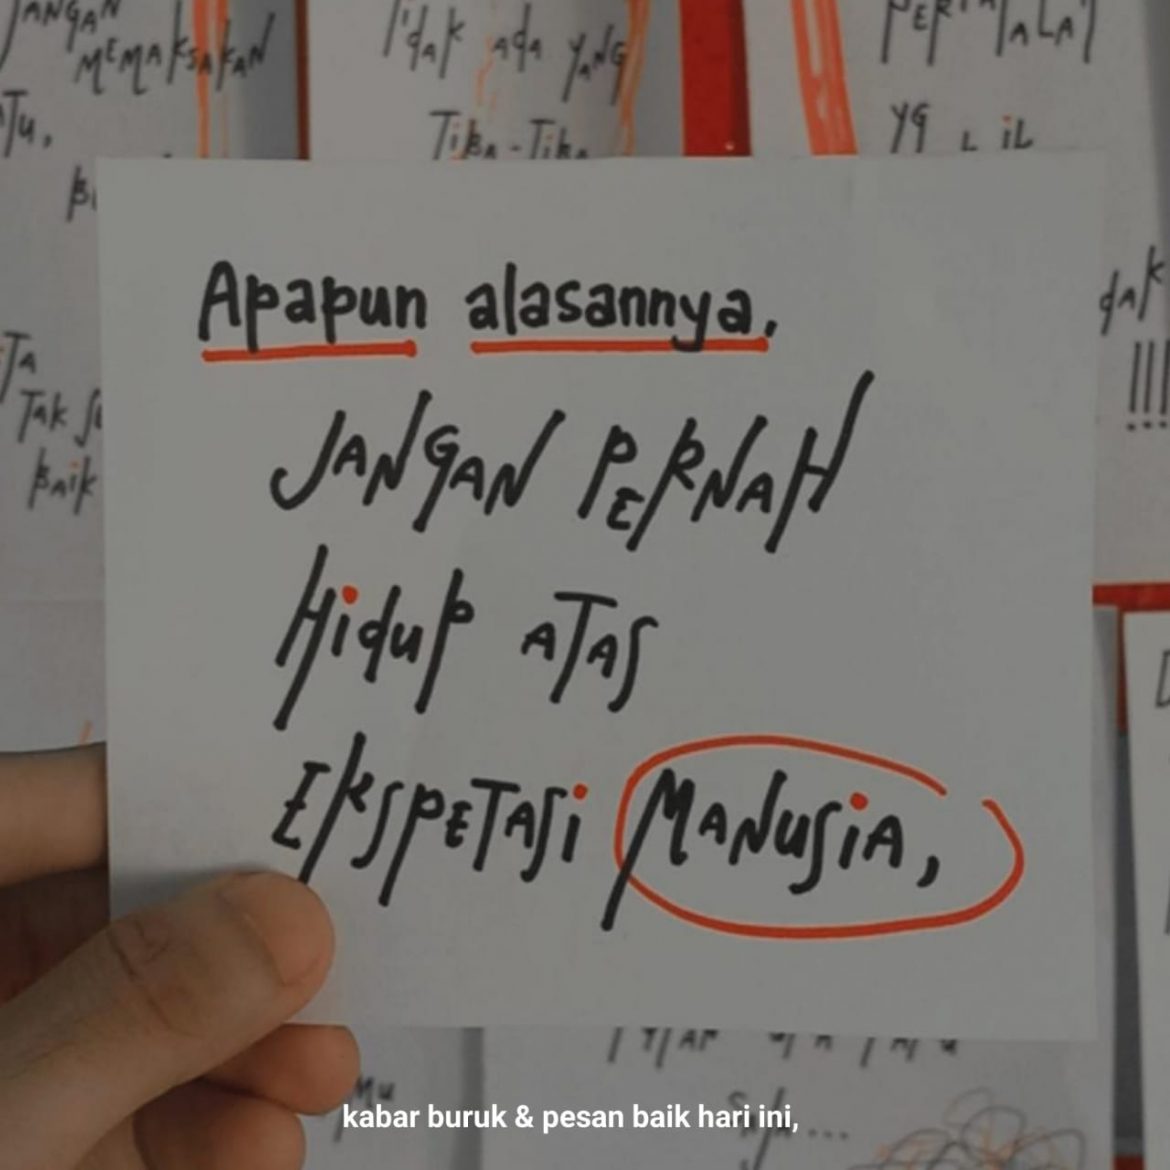 JANGAN
MEMAKSAKAN
TIDAK ADA YANG
TIBA-TIBA
YG
TAK
BAIK
DAK
!!!
Apapun alasannya,
JANGAN PERNAH
HIDUP ATAS
EKSPETASI MANUSIA,
kabar buruk & pesan baik hari ini,